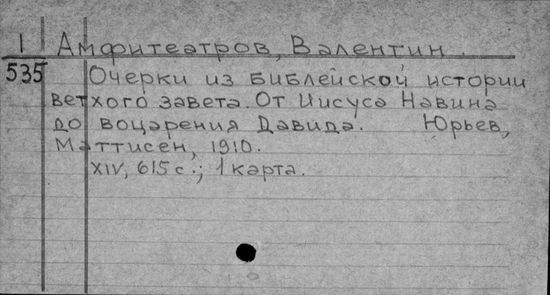 I Амфитеатров, Валентин.
535 Очерки из библейской истории
ветхого завета. От Иисуса Навина
до воцарения Давида. Юрьев,
Маттисен, 1910.
XIV, 615 с.; 1 карта.